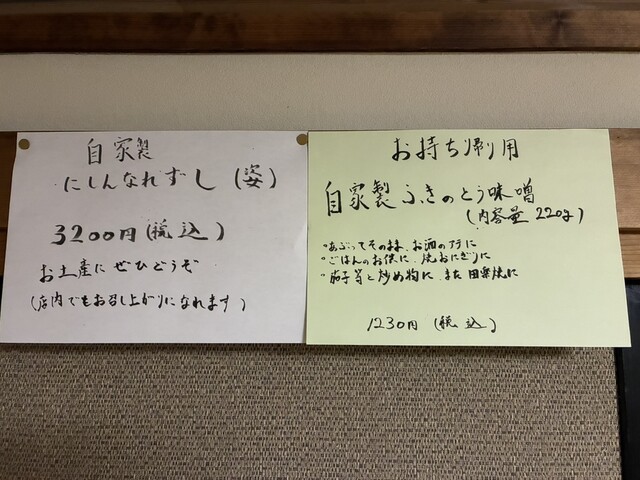 自家製
にしんなれずし(姿)
3200円(税込)
お土産にぜひどうぞ
(店内でもお召し上がりになれます)
お持ち帰り用
自家製ふきのとう味噌
(内容量220g)
°あぶってそのまま、お酒のアテに
°ごはんのお供に、焼おにぎりに
°茄子等と炒め物に また田楽焼に
1230円(税込)